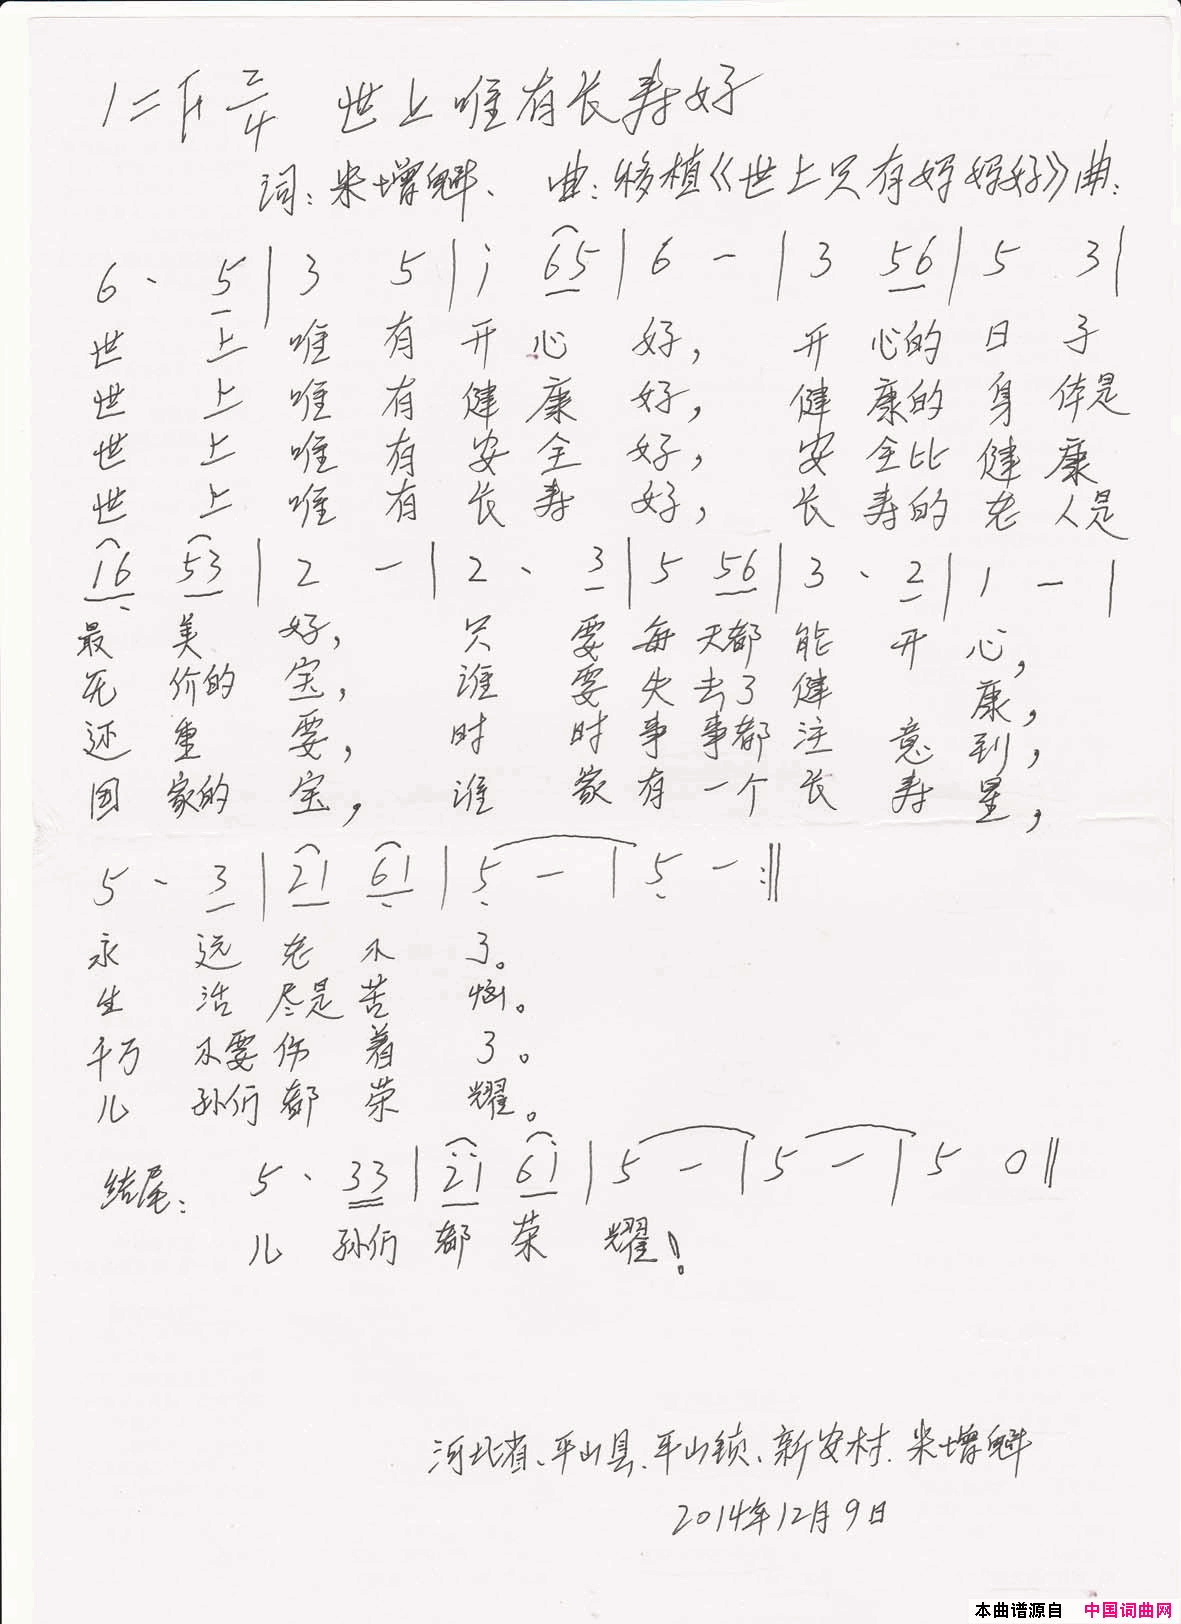 1=F 2/4 世上唯有长寿好
词:米增魁、 曲:移植《世上只有妈妈好》曲:
6 · 5 | 3 5 | i 65 | 6 - | 3 56 | 5 3 |
世 上 唯 有 开 心 好, 开 心的 日 子
世 上 唯 有 健 康 好, 健 康的 身 体是
世 上 唯 有 安 全 好, 安 全比 健 康
世 上 唯 有 长 寿 好, 长 寿的 老 人是
16 53 | 2 - | 2 · 3 | 5 56 | 3 · 2 | 1 - |
最 美 好, 只 要 每 天都 能 开 心,
无 价的 宝, 谁 要 失 去了 健 康,
还 重 要, 时 时 事 事都 注 意 到,
国 家的 宝, 谁 家 有 一个 长 寿 星,
5 · 3 | 21 61 | 5 - | 5 - :||
永 远 老 不 了。
生 活 尽是 苦 恼。
千万 不要 伤 着 了。
儿 孙们 都 荣 耀。
结尾: 5 · 33 | 21 61 | 5 - | 5 - | 5 0 ||
儿 孙们 都 荣 耀!
河北省、平山县、平山镇、新安村、米增魁
2014年12月9日
本曲谱源自 中国词曲网